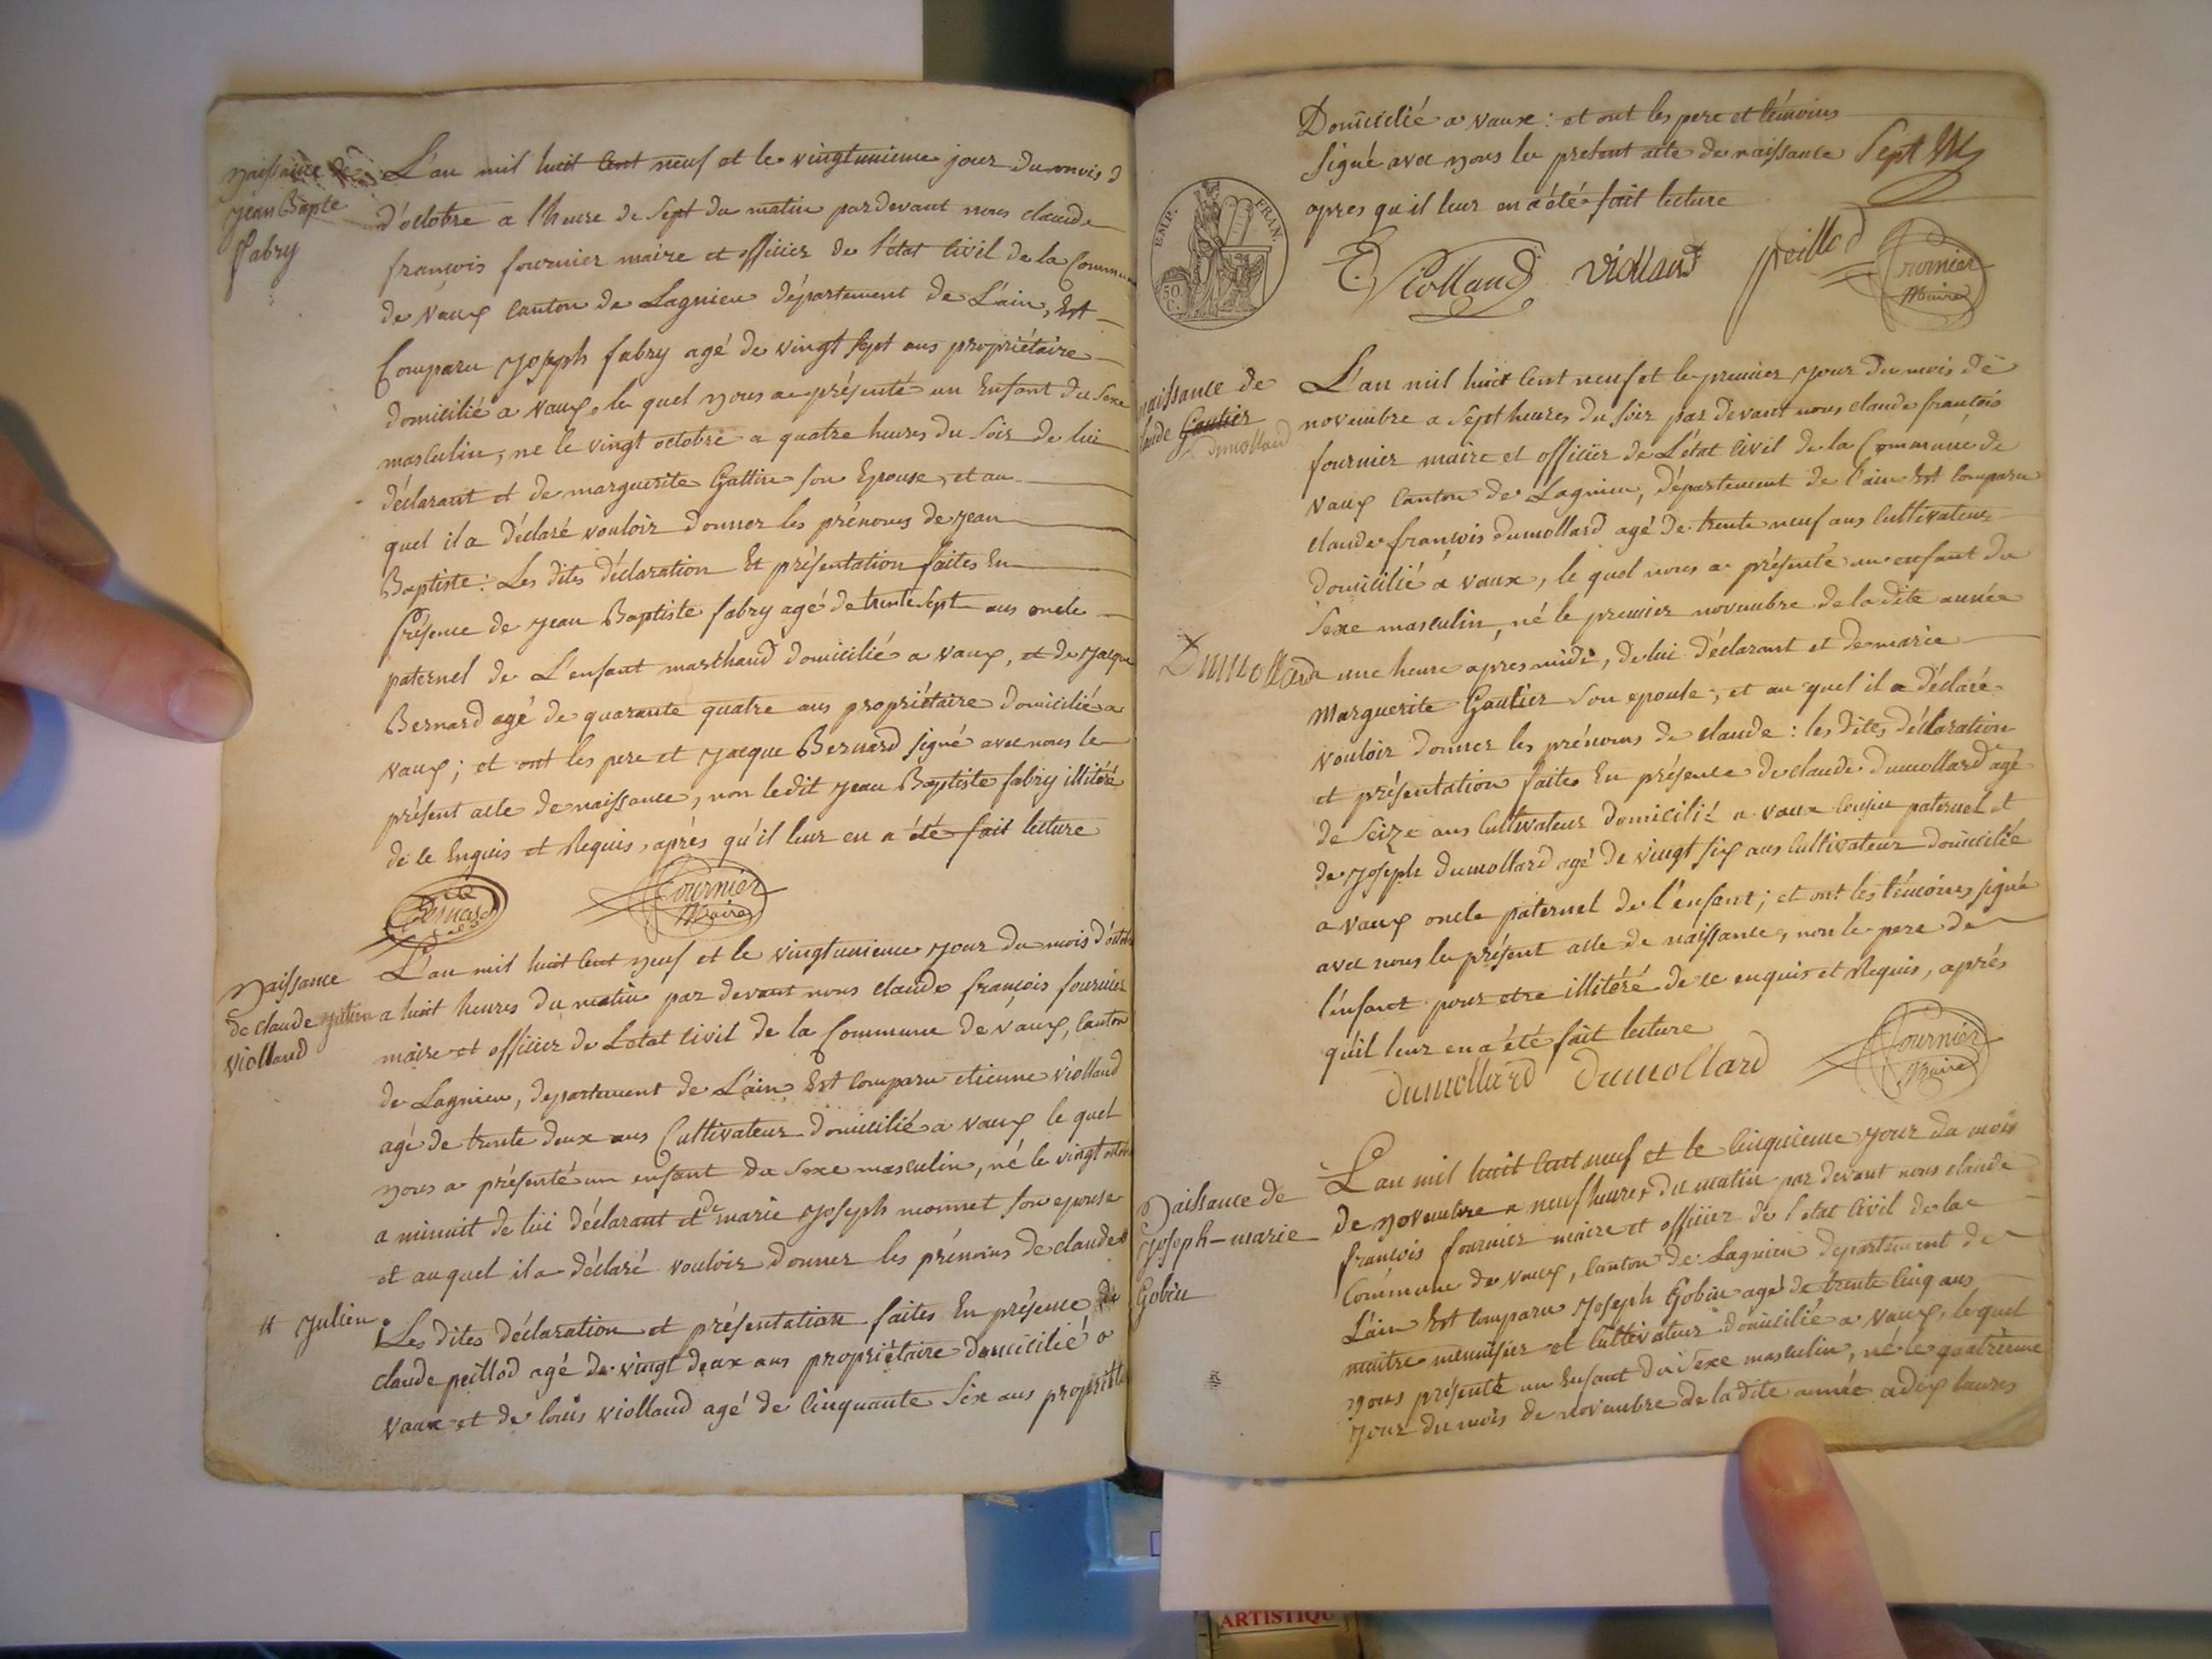 Naissance de
Jean Bapte
fabry
L'an mil huit Cent neuf et le vingtunieme jour du mois d
d'octobre a l'heure de Sept du matin pardevant nous claude
francois fournier maire et officier de l'état Civil de la Commune
de Vaux Canton de Lagnieu département de L'ain, Est
Comparu Joseph fabry agé de vingt sept ans propriétaire
domicilié a Vaux, le quel nous a présenté un Enfant du Sexe
masculin, né le vingt octobre a quatre heures du Soir de lui
déclarant et de marguerite Gattin son Epouse, et au
quel il a déclaré vouloir donner les prénoms de jean
Baptiste : Les dites déclaration Et présentation faites En
Présence de jean Baptiste fabry agé de trente Sept ans oncle
paternel de L'enfant marchand domicilié a Vaux, et de Jacque
Bernard agé de quarante quatre ans propriétaire domicilié a
Vaux ; et ont les pere et Jacque Bernard signé avec nous le
présent acte de naissance, non ledit jean Baptiste fabry illitéré
de ce Enquis et Requis, après qu'il leur en a été fait lecture
Bernard
fournier
Maire
Naissance
de claude julien
Viollaud
L'an mil huit Cent neuf et le vingtunieme jour du mois d'octobre
a huit heures du matin par devant nous claude françois fournier
maire et officier de L'etat Civil de la Commune de Vaux, Canton
de Lagnieu, departement de L'ain, Est Comparu etienne viollaud
agé de trente deux ans Cultivateur domicilié a Vaux le quel
nous a présenté un enfant du Sexe masculin, né le vingt octobre
a minuit de lui déclarant et de marie Joseph monnet son epouse
et auquel il a déclaré vouloir donner les prénoms de claude #
# Julien.
Les dites déclaration et présentation faites En présence de
claude peillod agé de vingt deux ans propriétaire domicilié a
Vaux et de louis viollaud agé de Cinquante Six ans propriétaire
Domicilié a Vaux : et ont les pere et témoins
Signé avec nous le present acte de naissance
apres qu'il leur en a été fait lecture
EMP. FRAN.
50 C.
E Viollaud viollaud peillod
fournier
Maire
naissance de
claude Gautier
Dumollard
L'an mil huit Cent neuf et le premier jour du mois de
novembre a Sept heures du Soir par devant nous claude françois
fournier maire et officier de L'état Civil de la Commune de
Vaux Canton de Lagnieu, département de l'ain Est Comparu
claude françois dumollard agé de trente neuf ans Cultivateur
domicilié a vaux, le quel nous a présenté un enfant du
Sexe masculin, né le premier novembre de la dite année
Dumollard
a une heure apres midi, de lui déclarant et de marie
Marguerite Gautier Son epouse, et au quel il a déclaré
vouloir donner les prénoms de claude : les dites déclaration
et présentation faites En présence de claude dumollard agé
de Seize ans Cultivateur domicilié a vaux Cousin paternel et
de Joseph dumollard agé de vingt six ans Cultivateur domicilié
a vaux oncle paternel de l'enfant ; et ont les témoins signé
avec nous le présent acte de naissance, non le pere de
l'enfant pour etre illitéré de ce enquis et Requis, après
qu'il leur en a été fait lecture
dumollard dumollard
fournier
Maire
Naissance de
Joseph-marie
Gobin
L'an mil huit Cent neuf et le Cinquieme jour du mois
de novembre a neuf heures du matin par devant nous claude
françois fournier maire et officier de l'etat Civil de la
Commune de Vaux, Canton de Lagnieu departement de
L'ain Est Comparu Joseph Gobin agé de trente Cinq ans
maitre menuisier et Cultivateur domicilié a Vaux, lequel
nous présenté un Enfant du Sexe masculin, né le quatrieme
jour du mois de novembre de la dite année a dix heures
ARTISTIQU